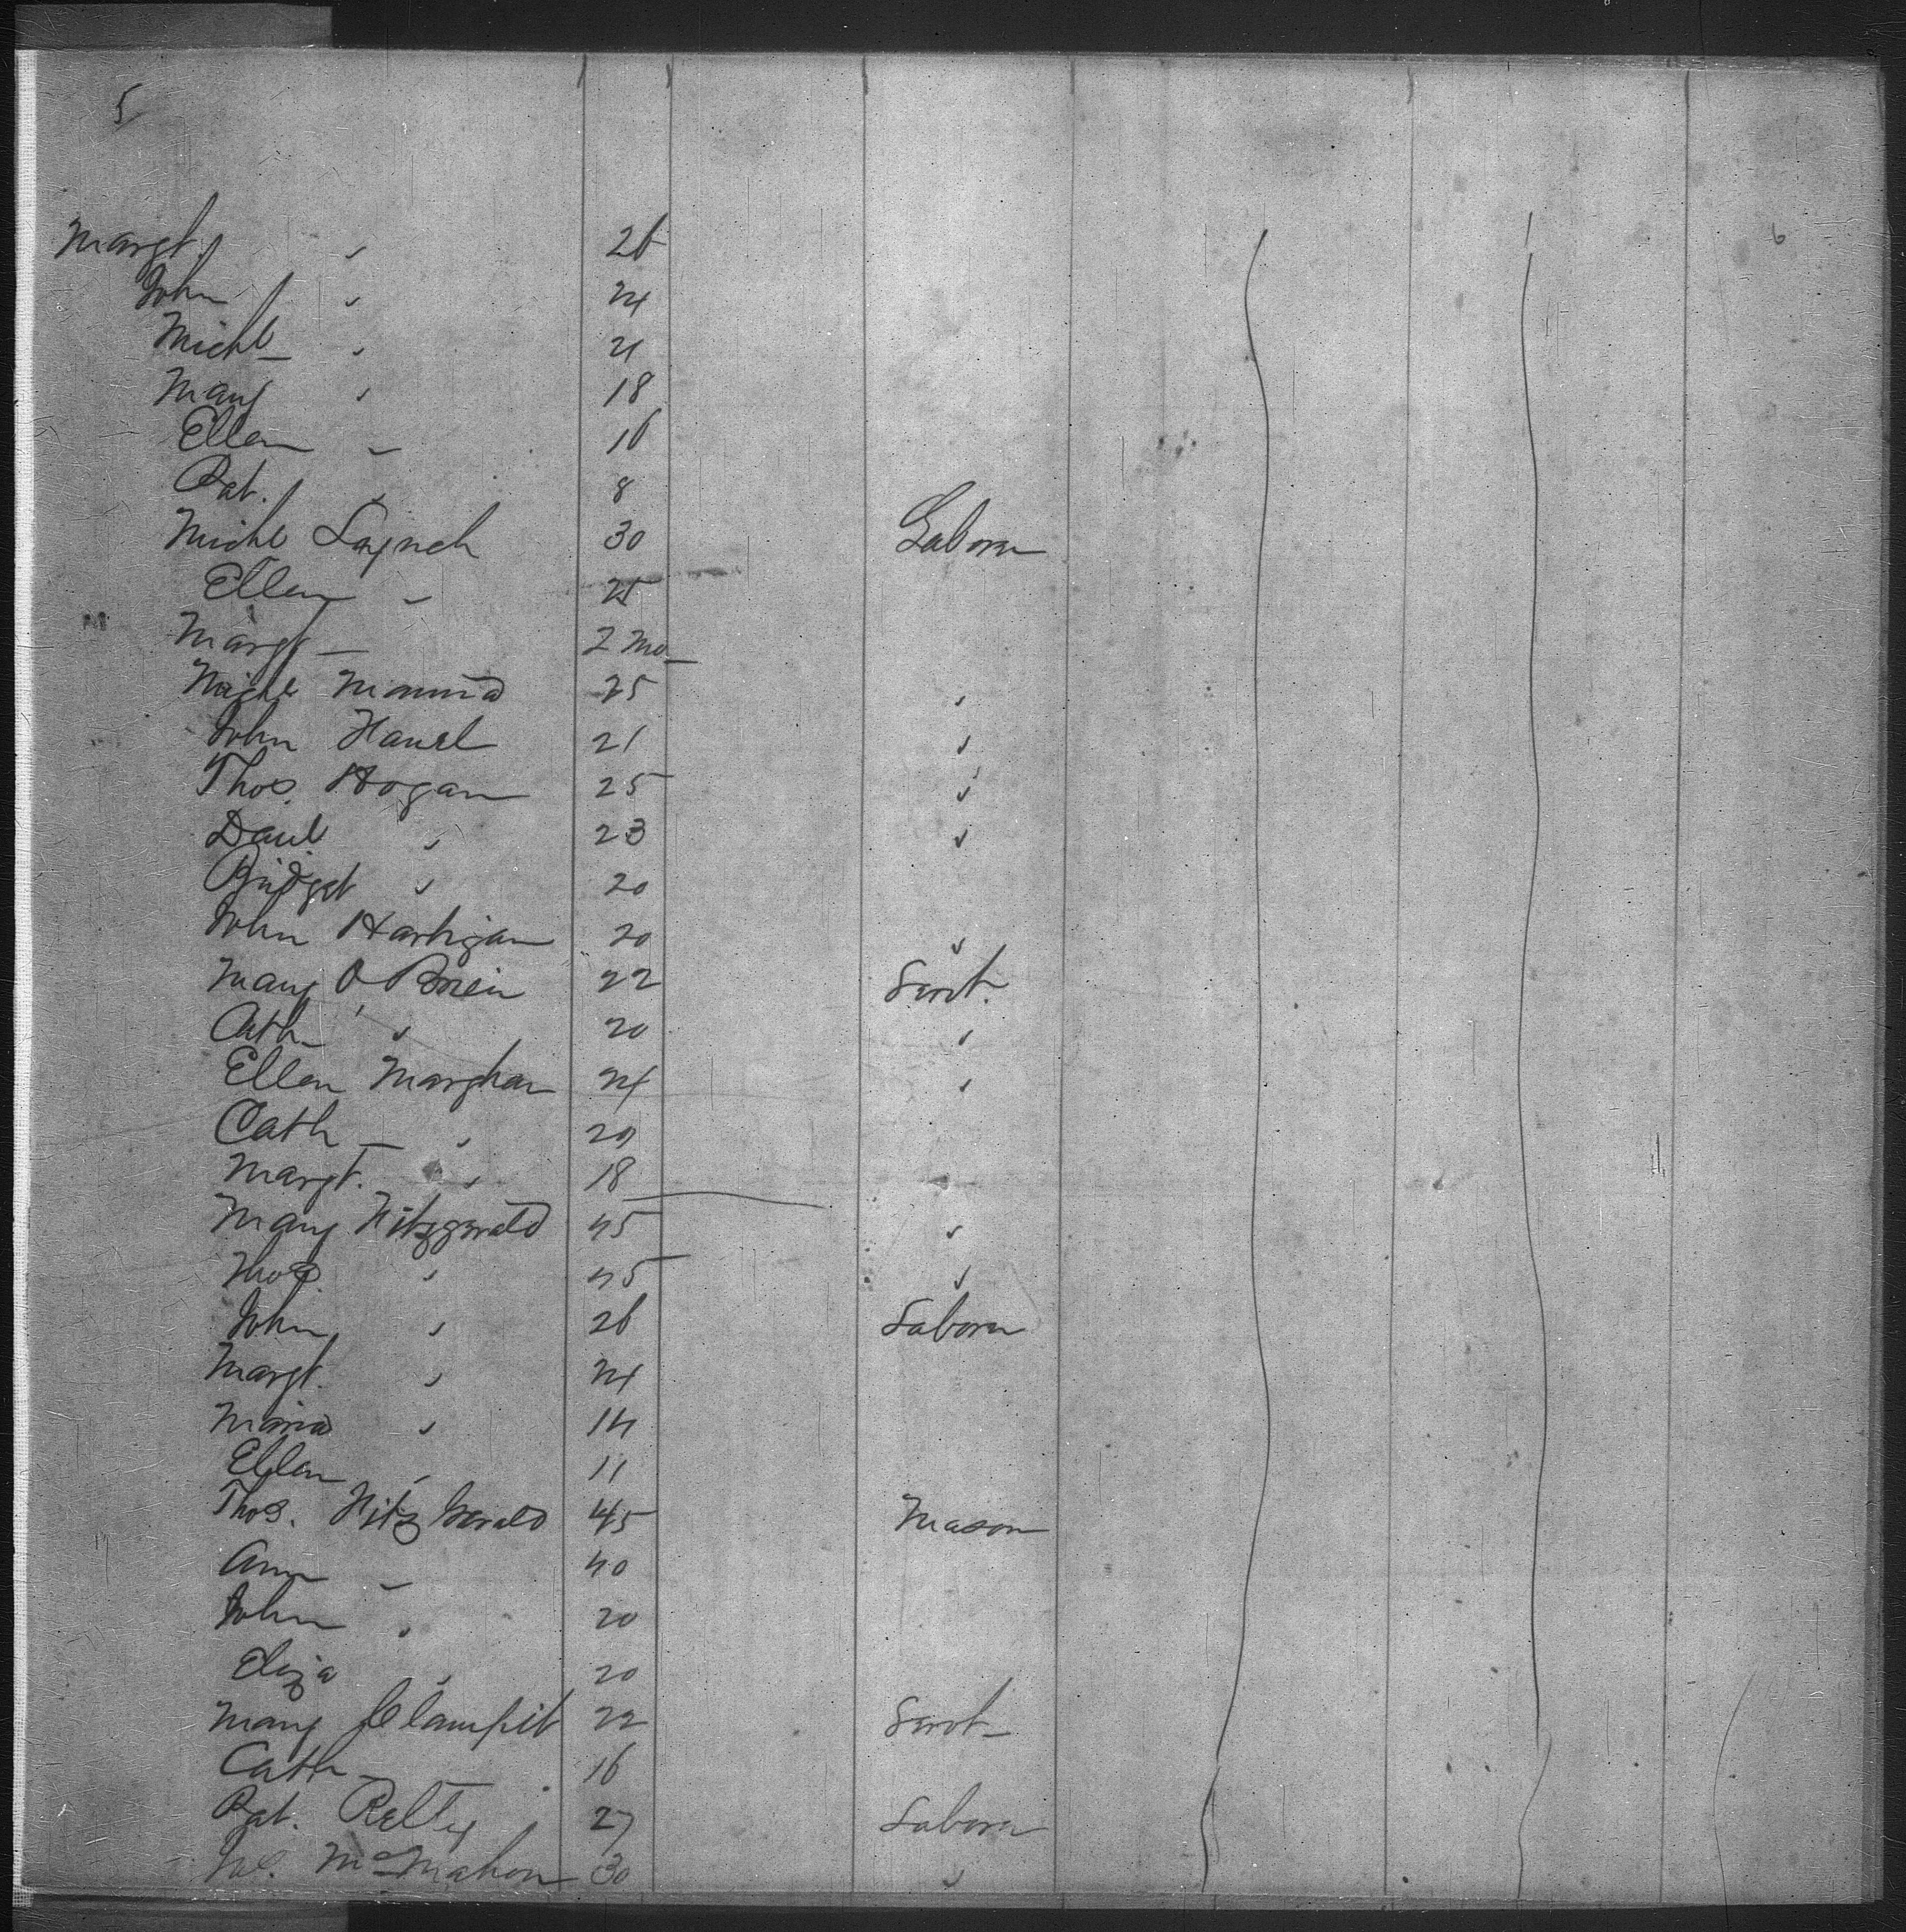 5
Margt. " 26
John " 24
Michl " 21
Mary " 18
Ellen " 16
Pat. " 8
Michl Laynch 30 Laborer
Ellen " 25
Margt — 2 mo
Michl 25 "
John 21 "
Thos. Hogan 25 "
Danl. " 23 "
Bridget " 20
John Hartigan 20 "
Mary O'Brien 22 Servt.
Cath " 20 "
Ellen Marghan 24 "
Cath — " 20
Margt. " 18 "
Mary Fitzgerald 45 "
Thos " 45 "
John " 26 Laborer
Margt. " 24
Maria " 14
Ellen " 11
Thos. Fitz Gerald 45 Mason
Ann " 40
John " 20
Eliza " 20
Mary Clampit 22 Servt
Cath — " 16
Pat. Relty 27 Laborer
McMahon 30 "
6